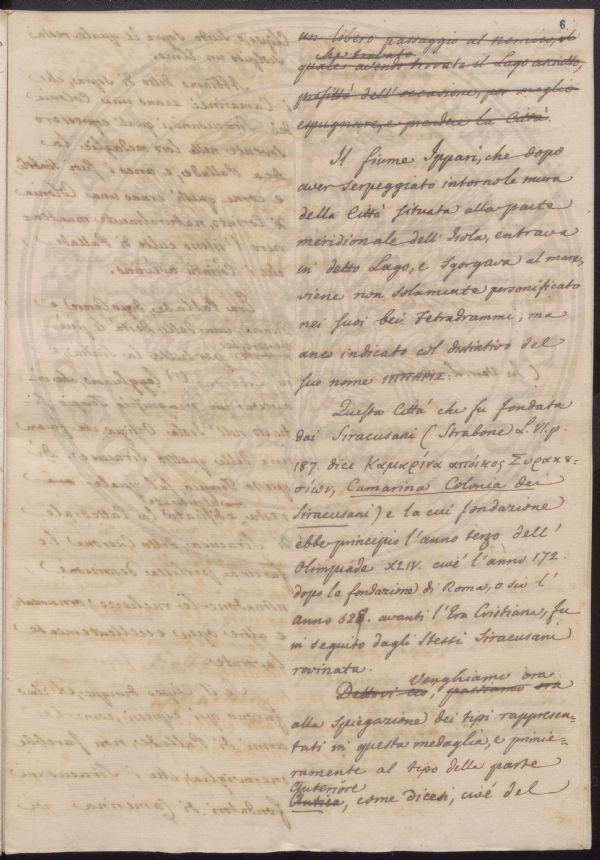 6
un libero passaggio al nemico, il
che trovato
quale avendo trovato il Lago asciutto,
profittò dell'occasione, per meglio
espugnare, e prendere la Città.
Il fiume Ippari, che dopo
aver serpeggiato intorno le mura
della Città situata alla parte
meridionale dell'Isola, entrava
in detto Lago, e sgorgava al mare,
viene non solamente personificato
nei suoi bei Tetradrammi, ma
anco indicato col distintivo del
suo nome ΙΠΠΑΡΙΣ:
Questa Città che fu fondata
dai Siracusani (Strabone L. VI. p.
187. dice Καμαρίνα αποίκος Συρακȣ-
σίων, Camarina Colonia dei
Siracusani) e la cui fondazione
ebbe principio l'anno terzo dell'
Olimpiade XLIV. cioé l'anno 172.
dopo la fondazione di Roma, o sia l'
anno 528. avanti l'Era Cristiana, fu
in seguito dagli stessi Siracusani
rovinata.
Venghiamo ora
passiamo ora
alla spiegazione dei tipi rappresen-
tati in questa medaglia, e primie-
ramente al tipo della parte
anteriore
Antica, come dicesi, cioé del